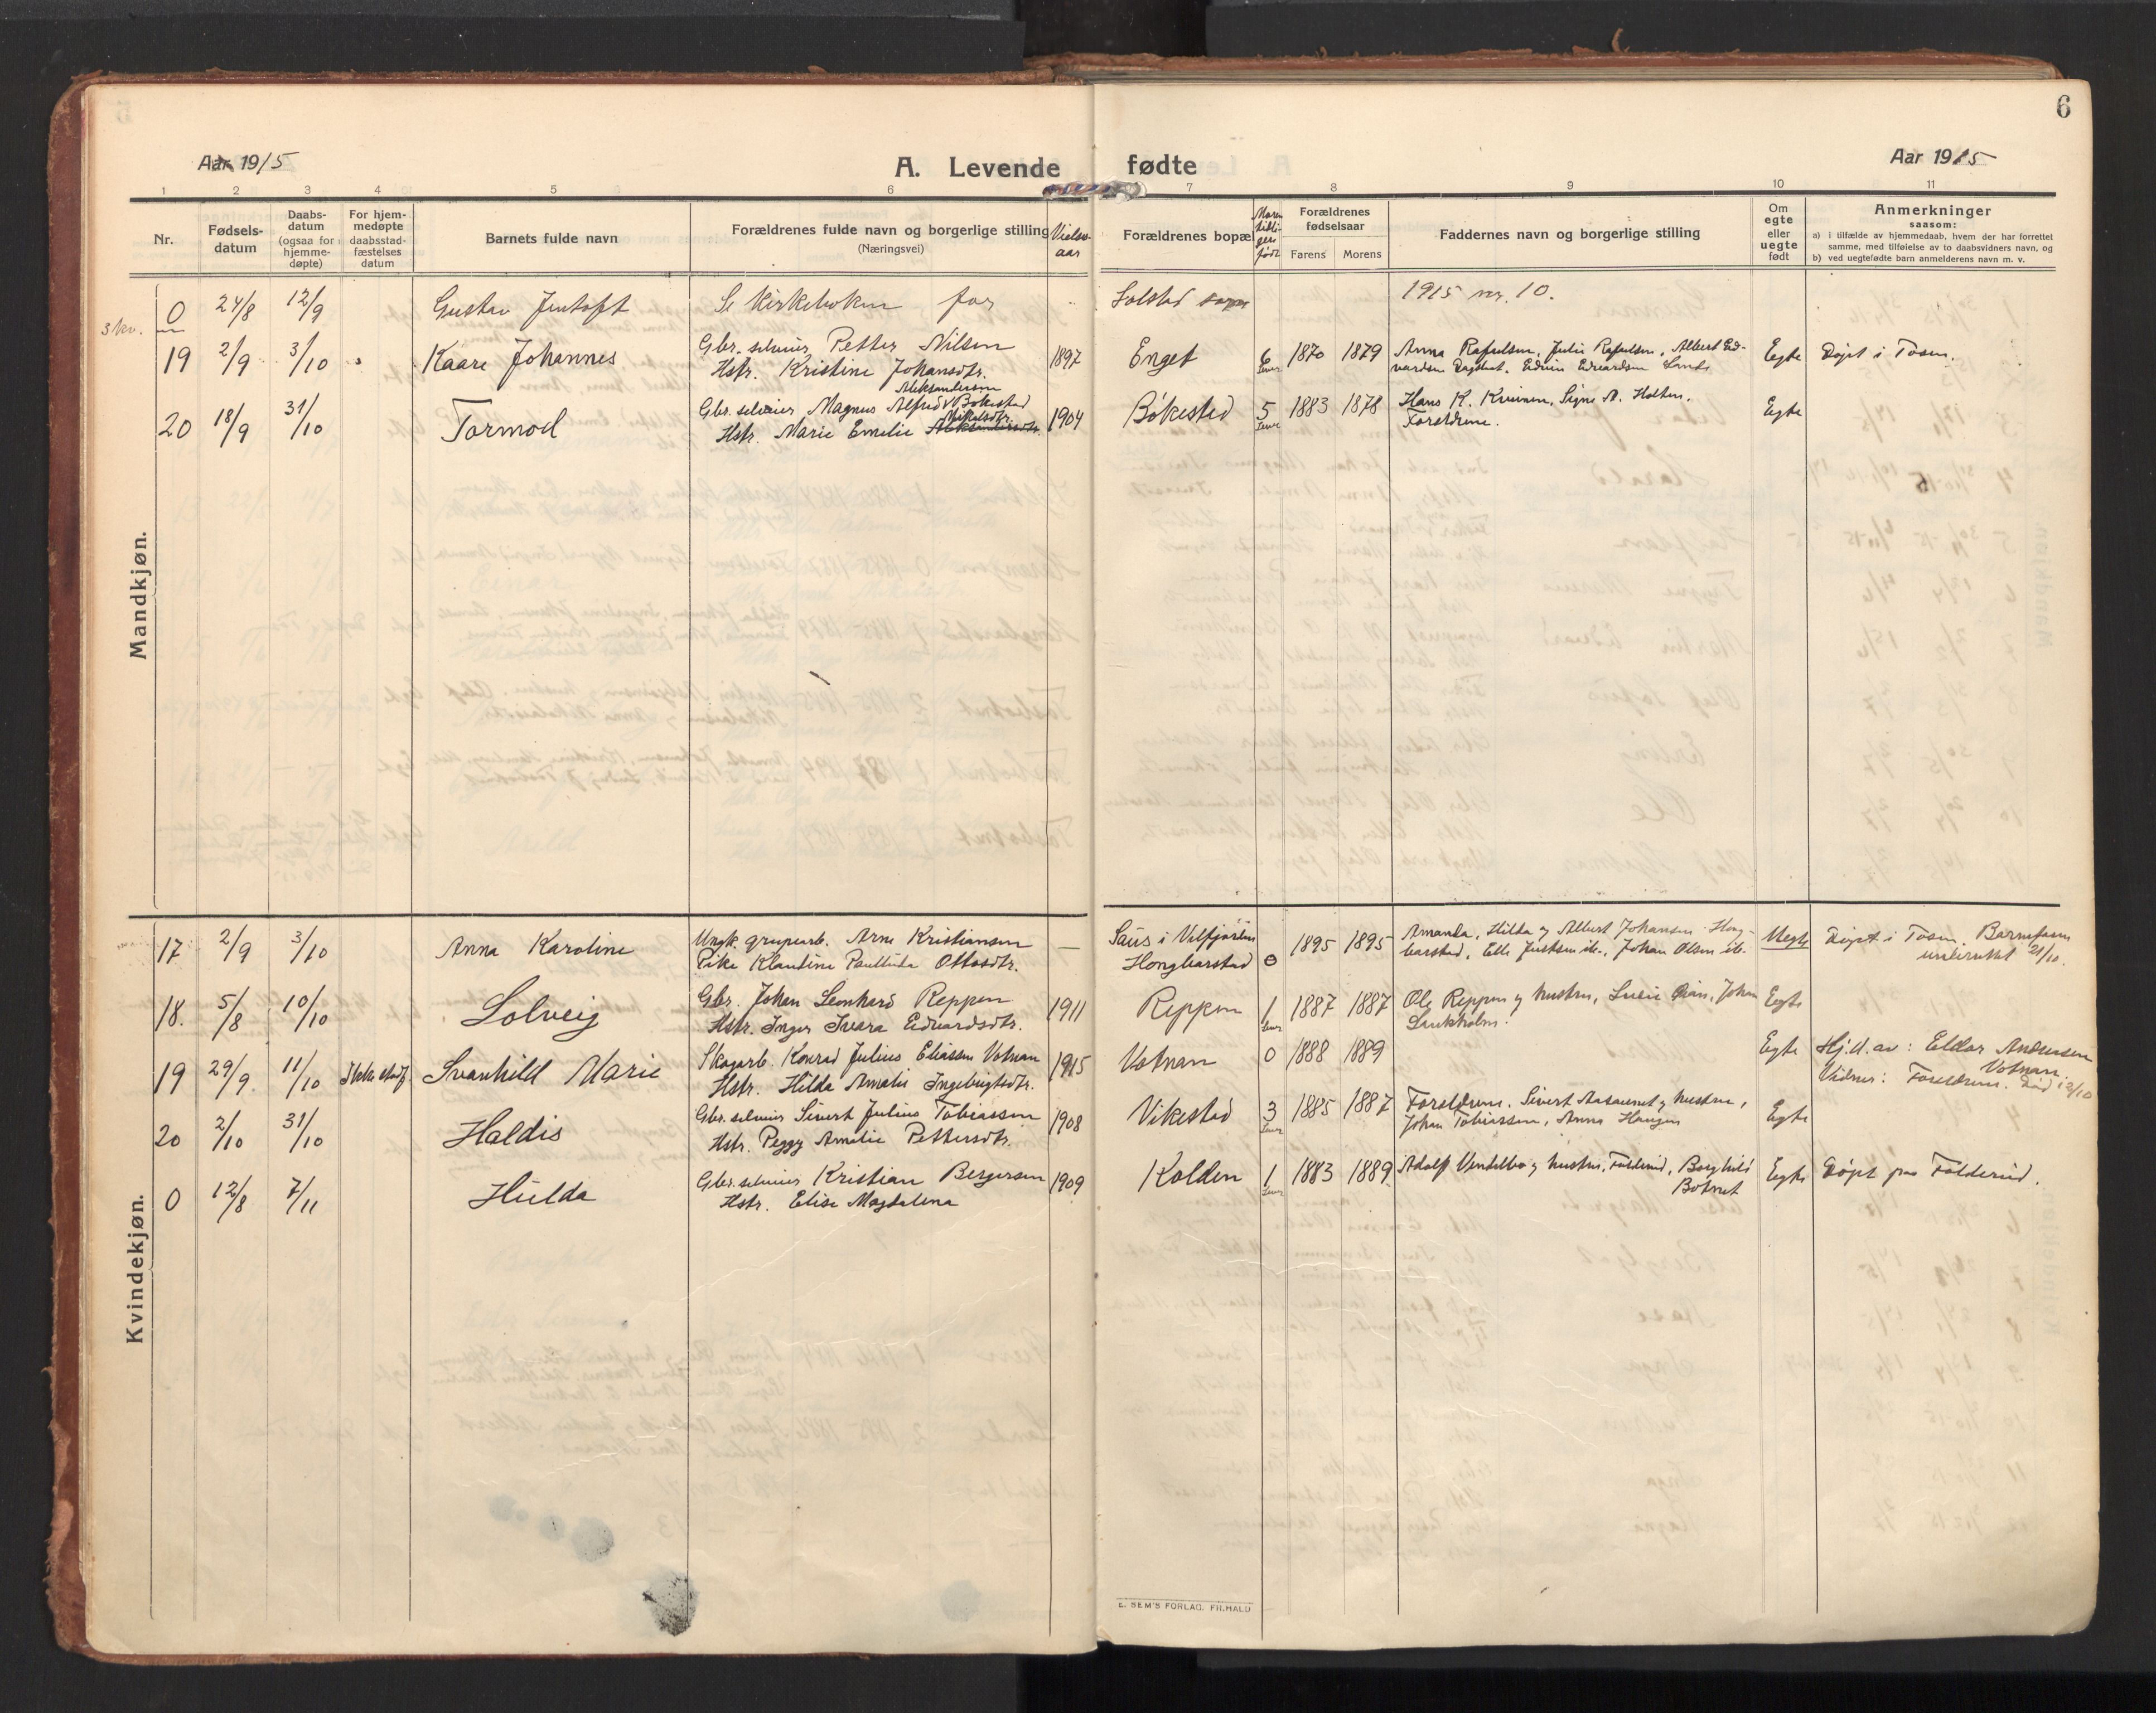 6
Aar 1915
A. Levende
fødte
Aar 1915
1 2 3 4 5 6 7 8 9 10 11
Nr.
Fødsels-
datum
Daabs-
datum
(ogsaa for
hjemme-
døpte)
For hjem-
medøpte
daabsstad-
fæstelses
datum
Barnets fulde navn
Forældrenes fulde navn og borgerlige stilling
(Næringsvei)
Vielses-
aar
Forældrenes bopæl
Forældrenes
fødselsaar
Farens Morens
Faddernes navn og borgerlige stilling
Om
egte
eller
uegte
født
Anmerkninger
saasom:
a) i tilfælde av hjemmedaab, hvem der har forrettet
samme, med tilføielse av to daabsvidners navn, og
b) ved uegtefødte barn anmelderens navn m. v.
Mandkjøn.
3 kv.
0 24/8 12/9 Gustav Se Kirkeboken for Solstad 1915 nr. 10.
19 2/9 3/10 Kaare Johannes Gbr. selveier Petter Nilsen 1897 Enget 6 1870 1879 Anna Rafaelsen, Julie Rafaelsen, Albert Ed- Egte Døpt i Tosen.
Hstr. Kristine Johansdtr. vardsen Dagslet, Edvin Edvardsen Lande
Aleksandersen
20 18/9 31/10 Tormod Gbr. selveier Magnus Alfred Bökestad 1904 Bökestad 5 1883 1878 Hans K. Kvinnen, Signe A. Holten, Egte
Hstr. Marie Emelie Mikalsdtr. Foreldrene.
Kvindekjøn.
17 2/9 3/10 Anna Karoline Ungk. grupearb. Arne Kristiansen — Saus i Velfjorden 0 1895 1895 Amanda, Hilda og Albert Johansen Hong- Uegte Døpt i Tosen. Barnefaren
Pike Klaudine Paulluda Ottosdtr. Hongbarstad barstad, Elle Justsen ib., Johan Olsen ib. underrettet 21/10.
18. 5/8 10/10 Solveig Gbr. Johan Leonhard Reppen 1911 Reppen 1 1887 1887 Ole Reppen og hustru, Johan Egte
Hstr. Inger Ivara Edvardsdtr.
19 29/9 11/10 Ikke stadf. Svanhild Marie Skogarb. Konrad Julius Eliassen Votnan 1915 Votnan 0 1888 1889 Egte Hj.d. av: Eldor Andersen
Hstr. Hilda Amalie Ingebrigtsdtr. Votnan.
Vidner: Foreldrene. Død 13/10
20 2/10 31/10 Haldis Gbr. selveier Sivert Julius Tobiassen 1908 Vikestad 3 1885 1887 Foreldrene. Sivert Aasaunet og hustru, Egte
Hstr. Peggy Amalie Pettersdtr. Johan Tobiassen, Anna Haugen
0 12/8 7/11 Hulda Gbr. selveier Kristian Bergersen 1909 Kolden 1 1883 1889 Adolf Vendelbo og hustru, Foldereid, Borghild Egte Døpt paa Foldereid.
Hstr. Elise Magdalena Botnet
E. SEM'S FORLAG, FR.HALD